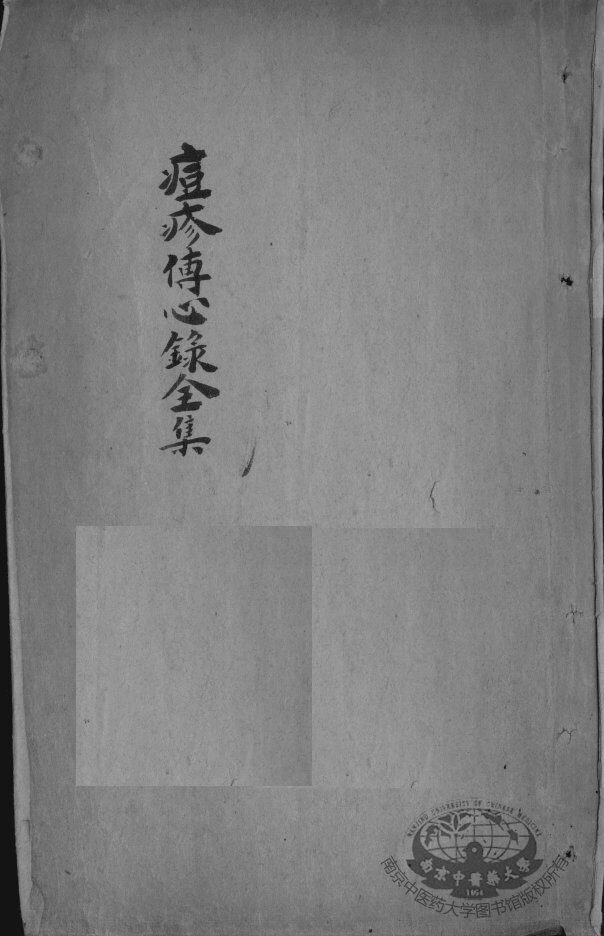 痘疹傳心錄全集
NANJING UNIVERSITY OF CHINESE MEDICINE
南京中醫藥大學
1954
南京中医药大学图书馆版权所有